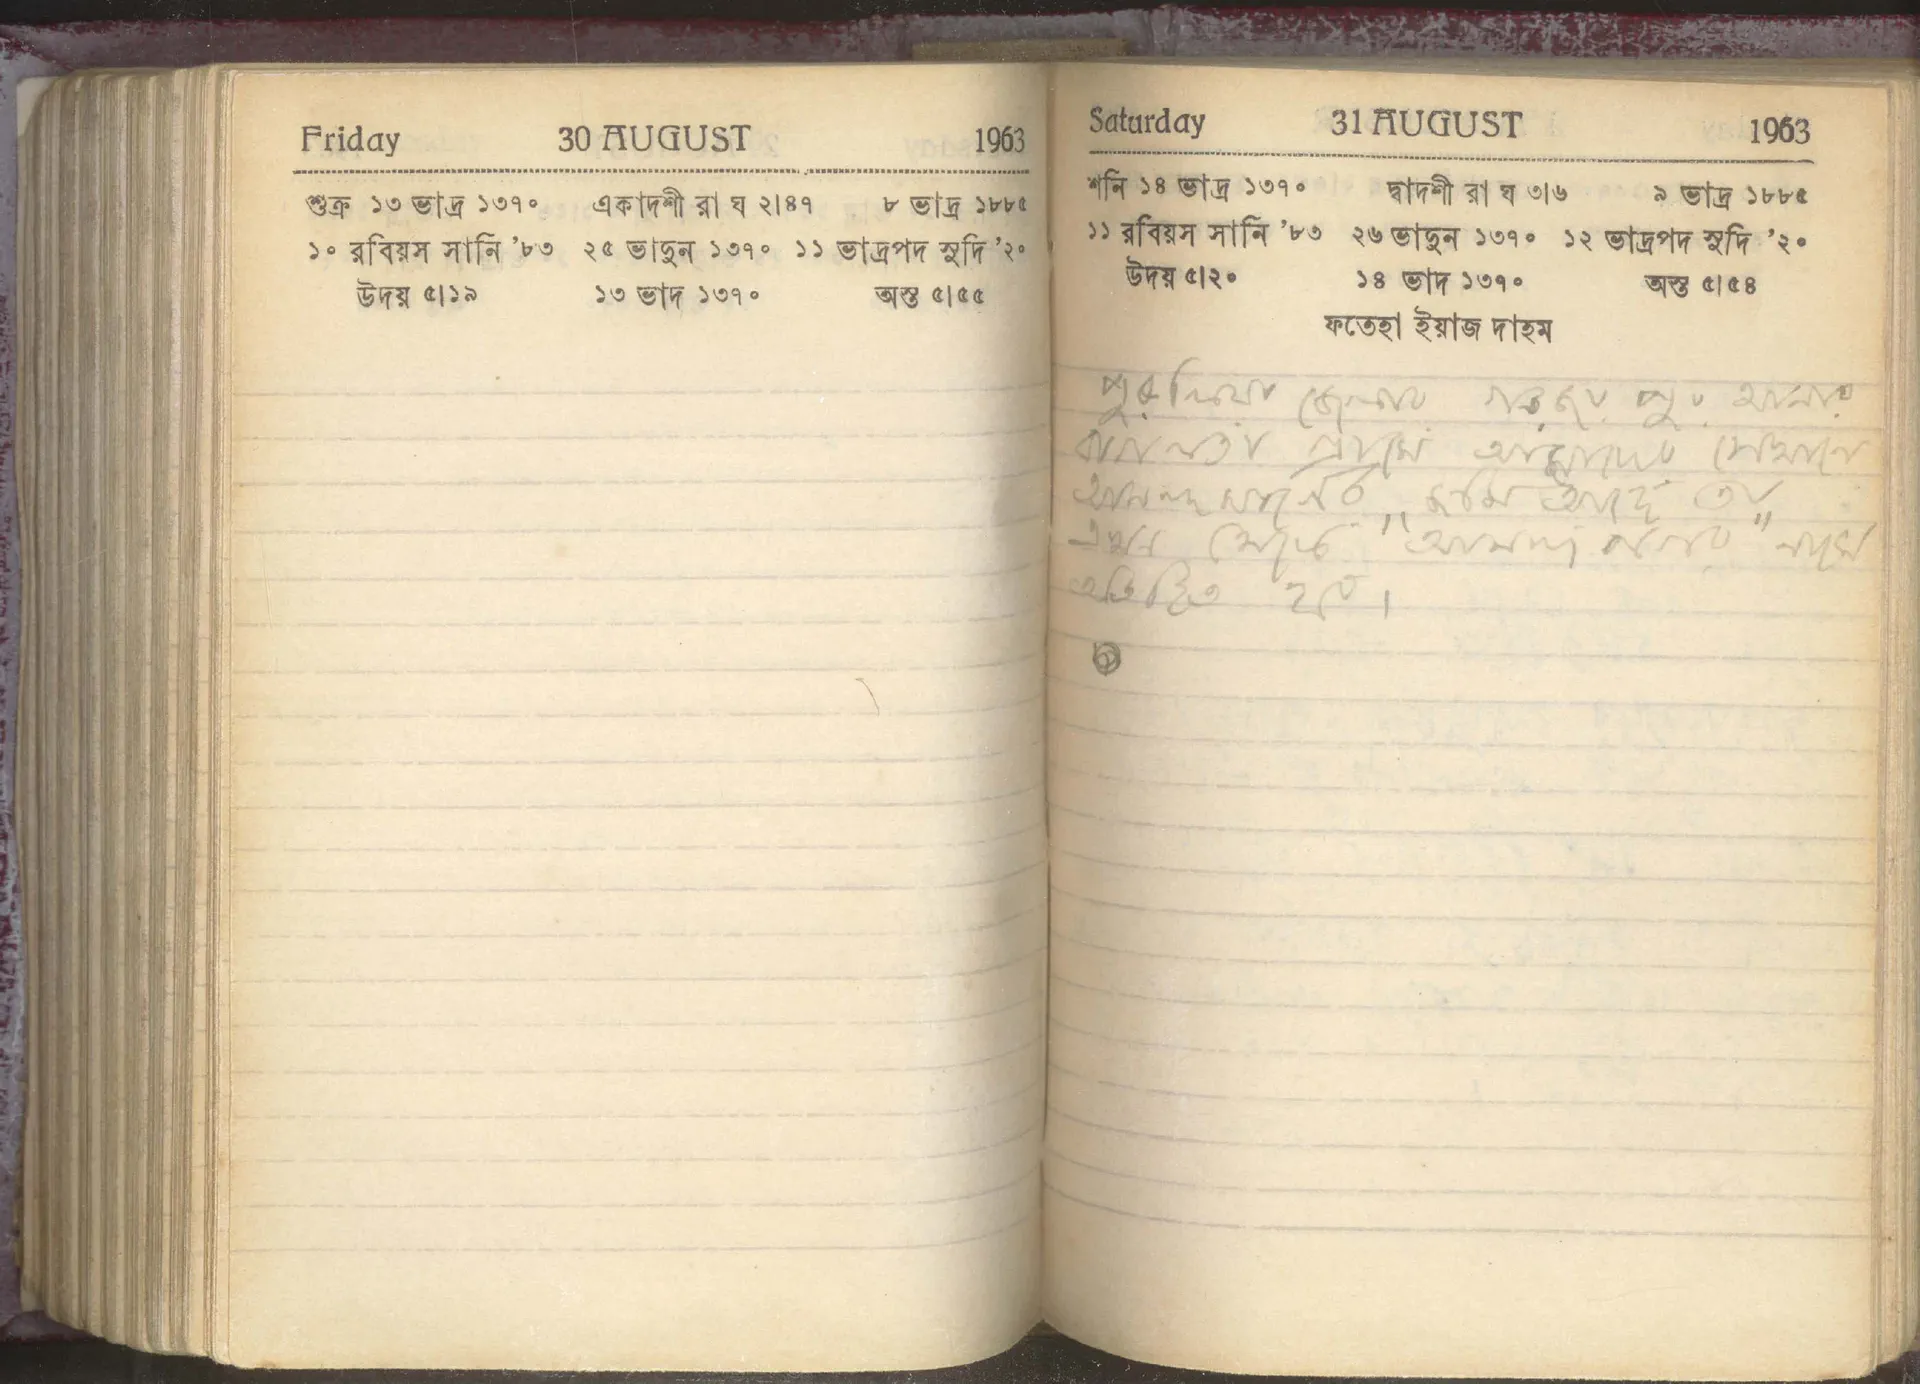 Friday 30 AUGUST 1963
শুক্র ১৩ ভাদ্র ১৩৭০ একাদশী রা ঘ ২।৪৭ ৮ ভাদ্র ১৮৮৫
১০ রবিয়স সানি '৮৩ ২৫ ভাদুন ১৩৭০ ১১ ভাদ্রপদ সুদি '২০
উদয় ৫।১৯ ১৩ ভাদ ১৩৭০ অস্ত ৫।৫৫
Saturday 31 AUGUST 1963
শনি ১৪ ভাদ্র ১৩৭০ দ্বাদশী রা ঘ ৩।৬ ৯ ভাদ্র ১৮৮৫
১১ রবিয়স সানি '৮৩ ২৬ ভাদুন ১৩৭০ ১২ ভাদ্রপদ সুদি '২০
উদয় ৫।২০ ১৪ ভাদ ১৩৭০ অস্ত ৫।৫৪
ফতেহা ইয়াজ দাহম
পুরুলিয়া জেলার পুর থানার
বাগলতা আমাদের সেখানে
জমি আছে তা
এখন থেকে "আনন্দ নগর" নামে
অভিহিত হবে।